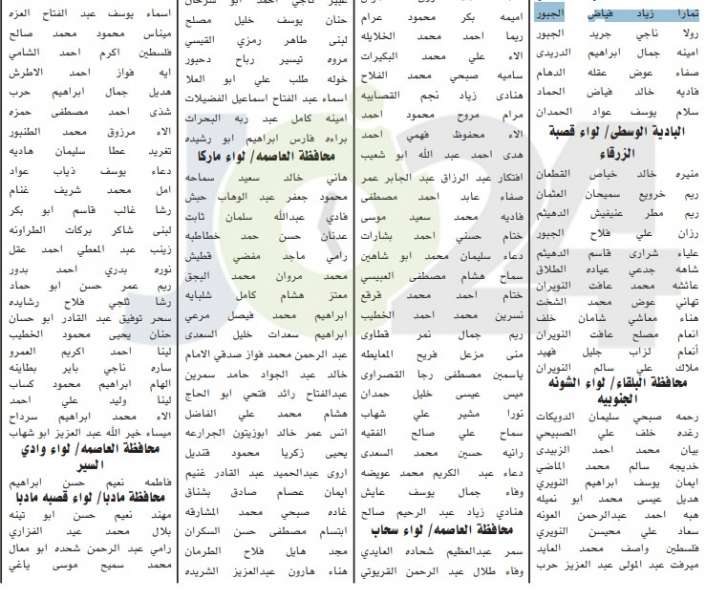 تمارا زياد فياض الجبور
رولا ناجي جريد الجبور
امينه جمال ابراهيم الدريدي
صفاء عوض عقله الدهام
فاديه خالد فياض الحماد
سلام يوسف عواد الحمدان
البادية الوسطى/ لواء قصبة
الزرقاء
منيره خالد خياص القطعان
ريم خرويع سميحان العثمان
ريم مطر عنيفيش الدهيثم
رزان علي فلاح الجبور
علياء شراري قاسم الدهيثم
شاهه جدعي عياده الطلاق
عائشه محمد عافت النويران
تهاني عوض محمد الشخت
هناء معاشي شامان خلف
انعام مصلح عافت النويران
أنعام لزاب جليل فهيد
ملاك علي سالم النويران
محافظة البلقاء/ لواء الشونه
الجنوبيه
رحمه صبحي سليمان الدويكات
رغده خلف علي الصبيحي
بيان محمد احمد الزبيدي
خديجه سالم محمد الماضي
ايمان يوسف ابراهيم النويري
هديل عيسى محمد ابو نميله
هبه احمد عبدالرحمن العونه
سعاد علي محيسن النويري
فلسطين واصف محمد العايد
ميرفت عبد المولى عبد العزيز حرب
اميمه بكر محمود عرام
ريما احمد محمد الخلايله
الاء علي محمد البكيرات
ساميه صبحي محمد الفلاح
هنادي زياد نجم القصايبه
مرام مروح محمود احمد
الاء محفوظ فهمي احمد
هدى احمد عبد الله ابو شعيب
افتكار عبد الرزاق عبد الجابر عمر
صفاء عابد احمد مصطفى
فاديه محمد سعيد موسى
ختام حسني احمد بشارات
دعاء سليمان محمد ابو شاهين
سماح هشام مصطفى العبيسي
ختام احمد محمد قرقع
نسرين محمد احمد الخطيب
ريم جمال نمر قطاوى
منى مزعل فريح المعايطه
ياسمين مصطفى رجا القصراوى
ميس عيسى خليل حمدان
نورا مشير علي شهاب
سماح علي صالح الفقيه
رانيه حسين محمد السعدى
دعاء عبد الكريم محمد عويضه
وفاء جمال يوسف عايش
هنادي زياد عبد الرحيم صالح
محافظة العاصمه/ لواء سحاب
سمر عبدالعظيم شحاده العايدي
وفاء طلال عبد الرحمن القريوتي
عبير ناجي احمد ابو سرحان
حنان يوسف خليل مصلح
لبنى طاهر رمزي القيسي
مروه تيسير رباح دحبور
خوله طلب علي ابو العلا
اسماء عبد الفتاح اسماعيل الفضيلات
امينه كامل عبد ربه البحرات
براءه فارس ابراهيم ابو رشيده
محافظة العاصمه/ لواء ماركا
هاني خالد سعيد سماحه
محمود جعفر عبد الوهاب حبش
فادي عبدالله سلمان ثابت
عدنان حسن حمد خطاطبه
رامي ماجد مفضي قطيش
محمد مروان محمد اليجق
معتز هشام كامل شلبايه
ابراهيم محمد فيصل مرعي
ابراهيم سعدات خليل السعدى
عبد الرحمن محمد فواز صدقي الامام
خالد عبد الجواد حامد سمرين
عبدالفتاح رائد فتحي ابو الحاج
هشام محمد علي الفاضل
انس عمر خالد ابوزيتون الجرارعه
يحيى زكريا محمود قنديل
اروى عبدالحميد عبد القادر غنيم
ايمان عصام صادق بشناق
غاده صبحي محمد المشارقه
ابتسام مصطفى حسن السكران
مجد هايل فلاح الطرمان
هناء هارون عبدالعزيز الشريده
اسماء يوسف عبد الفتاح العزه
ميناس محمود محمد صالح
فلسطين اكرم احمد الشامي
ايه فواز احمد الاطرش
هديل جمال ابراهيم حرب
شذى احمد مصطفى حمزه
الاء مرزوق محمد الطنبور
تغريد عطا سليمان هاديه
دعاء يوسف ذياب عواد
امل محمد شريف غنام
رشا غالب قاسم ابو بكر
لبنى شاكر بركات الطراونه
زينب عبد المعطي احمد عقل
نوره بدري احمد بدور
ريم عمر حسن ابو حماد
رشا ثلجي فلاح رشايده
سحر توفيق عبد القادر ابو حسان
حنان يحيى محمود الخطيب
لينا احمد اكريم العمرو
ساره ناجي باير بطاينه
الهام ابراهيم محمود كساب
لينا وليد علي احمد
الاء محمد ابراهيم سرداح
ميساء خير الله عبد العزيز ابو شهاب
محافظة العاصمه/ لواء وادي
السير
فاطمه نعيم حسن ابراهيم
محافظة مادبا/ لواء قصبه مادبا
مهند نعيم حسن ابو تينه
بلال محمد عيد الفزاري
رامي عبد الرحمن شحده ابو معال
محمد سميح موسى ياغي